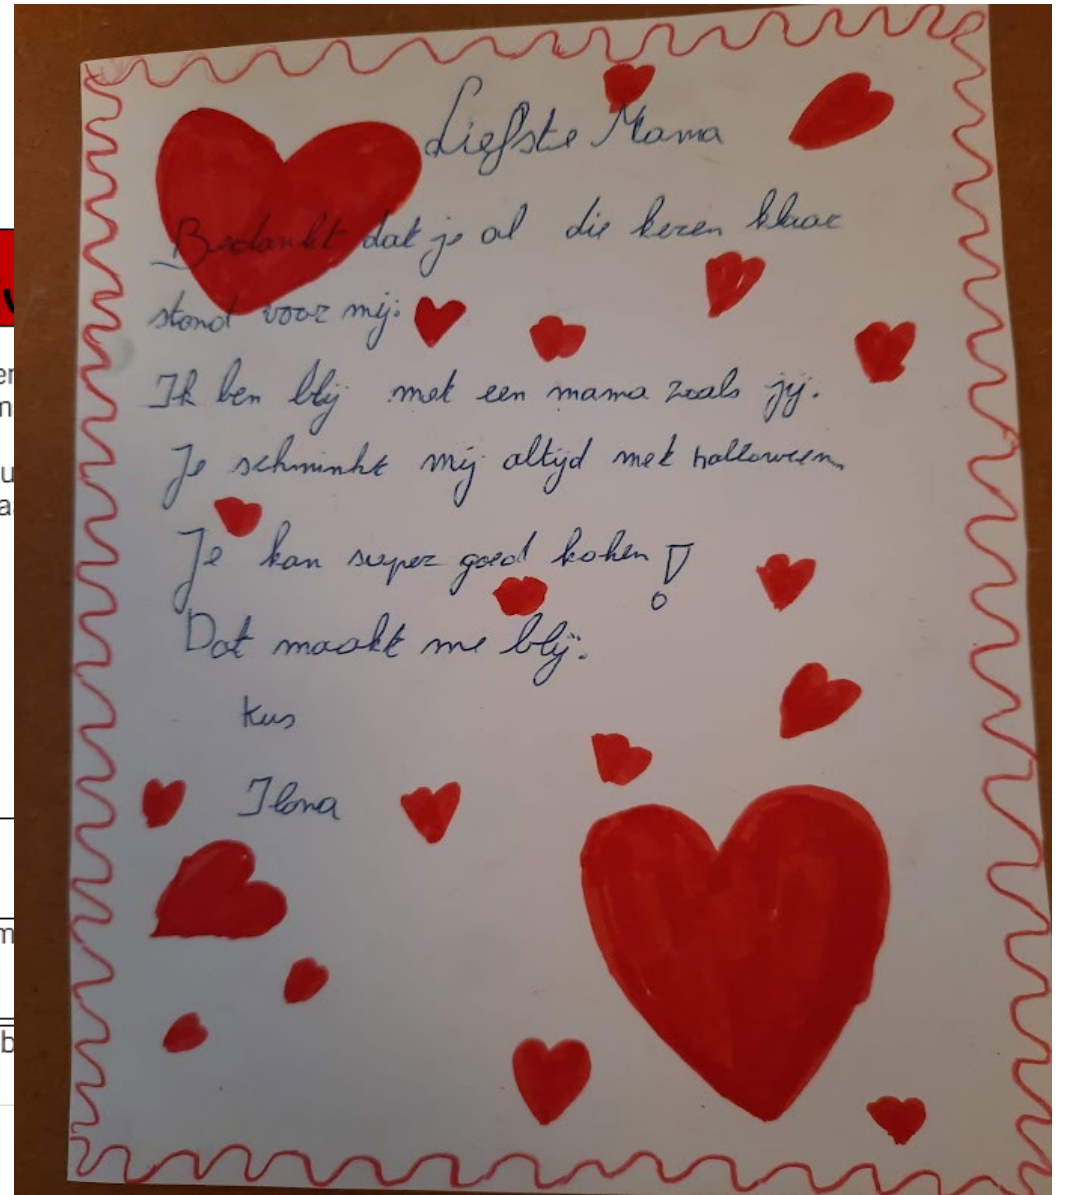 Liefste Mama
Bedankt dat je al die keren klaar
stond voor mij.
Ik ben blij met een mama zoals jij.
Je schminkt mij altijd met halloween.
Je kan super goed koken!
Dat maakt me blij.
Kus
Ilona